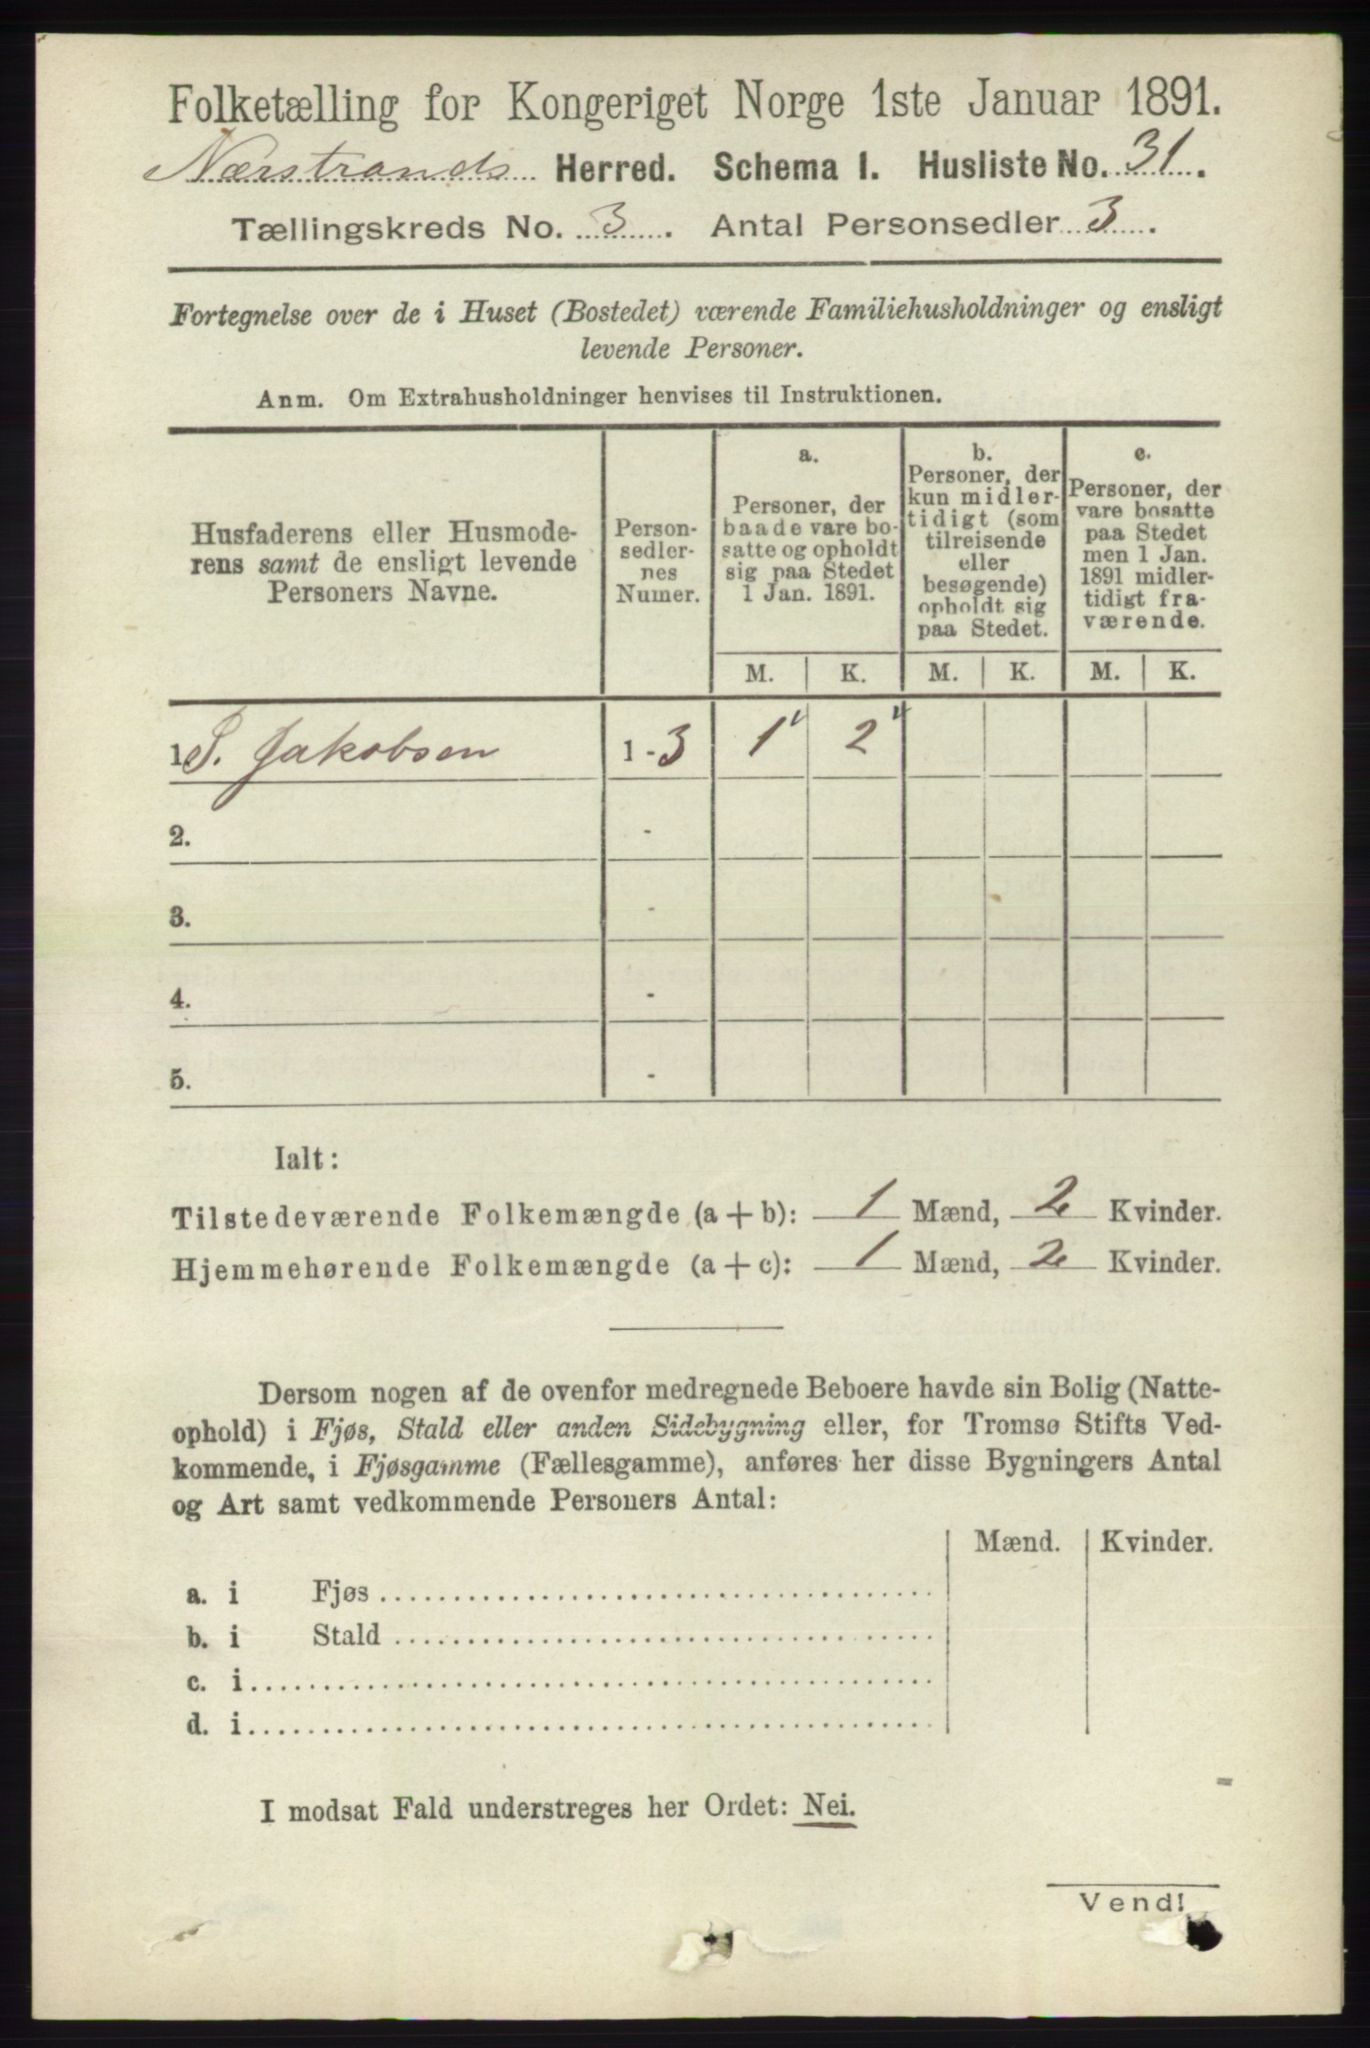 Folketælling for Kongeriget Norge 1ste Januar 1891.
Nærstrands Herred. Schema I. Husliste No. 31.
Tællingskreds No. 3. Antal Personsedler 3.
Fortegnelse over de i Huset (Bostedet) værende Familiehusholdninger og ensligt
levende Personer.
Anm. Om Extrahusholdninger henvises til Instruktionen.
Husfaderens eller Husmode-
rens samt de ensligt levende
Personers Navne.
Person-
sedler-
nes
Numer.
a.
Personer, der
baade vare bo-
satte og opholdt
sig paa Stedet
1 Jan. 1891.
b.
Personer, der
kun midler-
tidigt (som
tilreisende
eller
besøgende)
opholdt sig
paa Stedet.
c.
Personer, der
vare bosatte
paa Stedet
men 1 Jan.
1891 midler-
tidigt fra-
værende.
M. K. M. K. M. K.
1. S. Jakobsen 1 - 3 1 2
2. -
3. -
4. -
5. -
Ialt:
Tilstedeværende Folkemængde (a+b): 1 Mænd, 2 Kvinder.
Hjemmehørende Folkemængde (a+c): 1 Mænd, 2 Kvinder.
Dersom nogen af de ovenfor medregnede Beboere havde sin Bolig (Natte-
ophold) i Fjøs, Stald eller anden Sidebygning eller, for Tromsø Stifts Ved-
kommende, i Fjøsgamme (Fællesgamme), anføres her disse Bygningers Antal
og Art samt vedkommende Personers Antal:
Mænd. Kvinder.
a. i Fjøs
b. i Stald
c. i
d. i
I modsat Fald understreges her Ordet: Nei.
Vend!